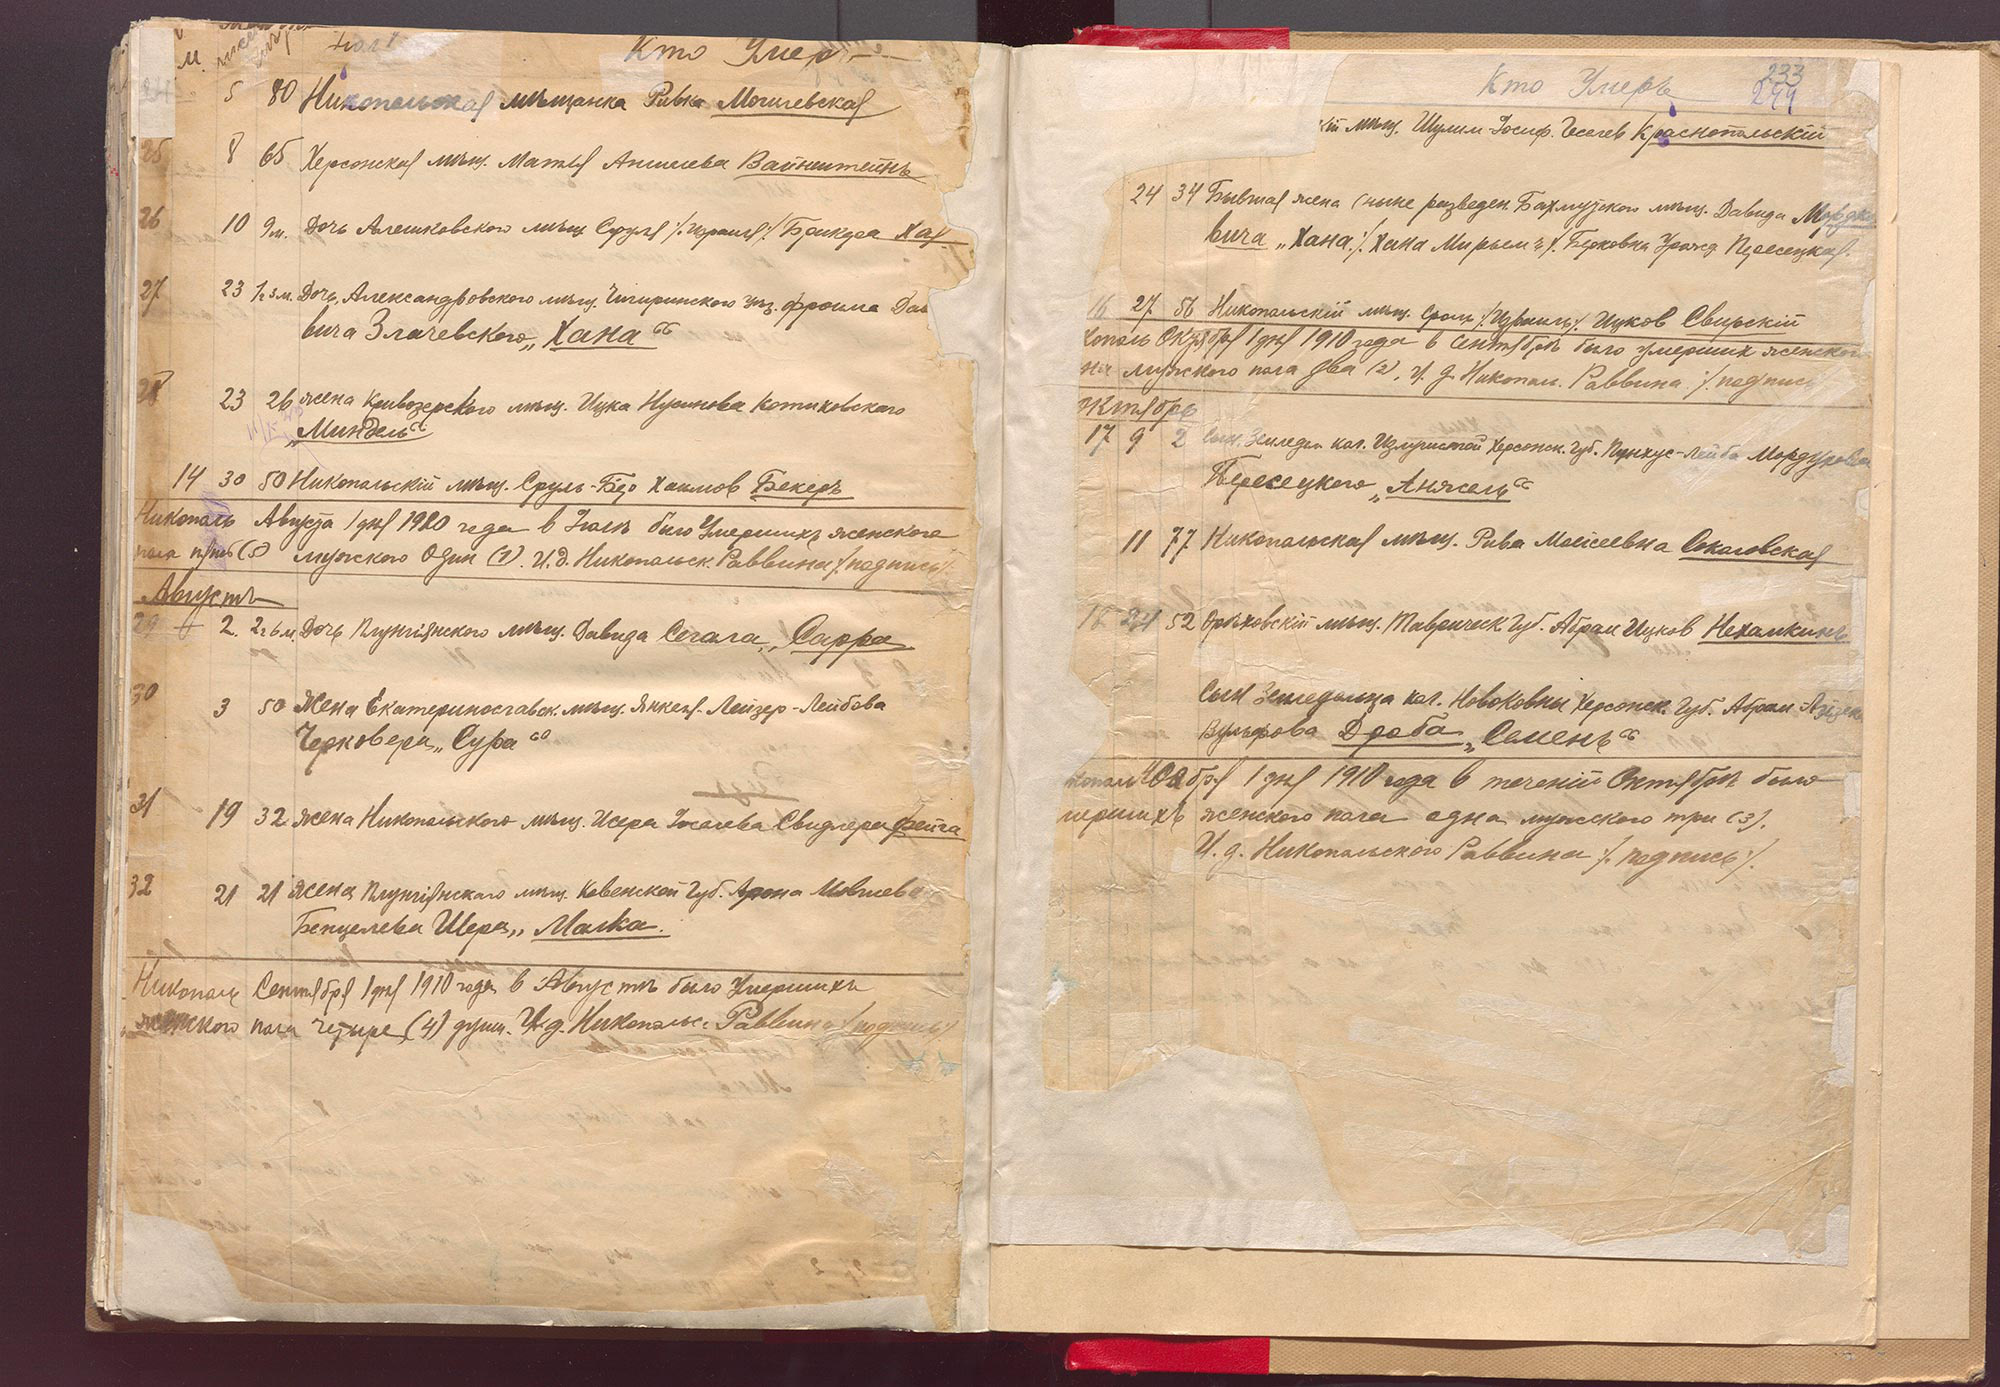 М.
Кто Умер
5 80 Никопольская мѣщанка Ривка Могилевская
25 8 65 Херсонская мѣщ. Матля Аншелева Вайнштейнъ
26 10 9 м. Дочь Алешковскаго мѣщ Сруля /:Израиля:/ Брикдеа Хая
27 23 1 г 3 м. Дочь Александровского мѣщ. Чигиринского уѣз. Фроима Дав
вича Злачевского „Хана“
28 23 26 Жена Кривозерского мѣщ. Ицка Нусинова Котиковского
„Миндель“
14 30 50 Никопольскій мѣщ. Сруль-Бер Хаимов Бекеръ
Никополь Августа 1 дня 1910 года в Іюлѣ было Умершихъ женского
пола пять (5) мужского Один (1). И.д. Никопольск. Раввина /:подпись:/
Августъ
29 2. 2 г 6 м Дочь Плунгянского мѣщ. Давида Сегала, „Сарра
30 3 50 Жена Екатеринославск. мѣщ. Янкеля-Лейзер-Лейбова
Черковера „Сура“
31 19 32 Жена Никопольского мѣщ. Исера Іоселева Свидлера Фейга
32 21 21 Жена Плунгянского мѣщ. Ковенской Губ. Арона Мовшева
Бенцелева Шера, „Малка.
Никополь Сентября 1 дня 1910 года в Августѣ было Умершихъ
женского пола четыре (4) душ. И.д. Никопольс. Раввина /:подпись:/
Кто Умеръ
233
244
кій мѣщ. Шулим-Іосиф. Геселев Краснопольскій
24 34 Бывшая жена (ныне разведен. Бахмутского мѣщ. Давида Мордко
вича „Хана /:Хана Мирьем“:/ Берковна Урожд Пересецкая.
16 27 56 Никопольскій мѣщ. Сроль /:Израиль:/ Ицков Свирскій
кополь Октября 1 дня 1910 года в Сентябрѣ было умерших женского
на мужского пола два (2), И. д. Никопол. Раввина /:подпись
Октябрь
17 9 2 Сын. Земледел кол. Излучистой Херсонск. Губ. Пинхус-Лейба Мордухова
Пересецкого „Анжель“
11 77 Никопольская мѣщ. Рива Моисеевна Соколовская
24 52 Орѣховскій мѣщ. Таврическ Губ. Абрам Ицков Нехамкинъ
Сын Земледельца кол. Новоковны Херсонск. Губ. Абрам Айзек
Вульфова Дроба „Семенъ“
кополь Ноября 1 дня 1910 года в теченій Октября было
мершихъ женского пола одна мужского три (3).
И. д. Никопольского Раввина /:подпись:/.